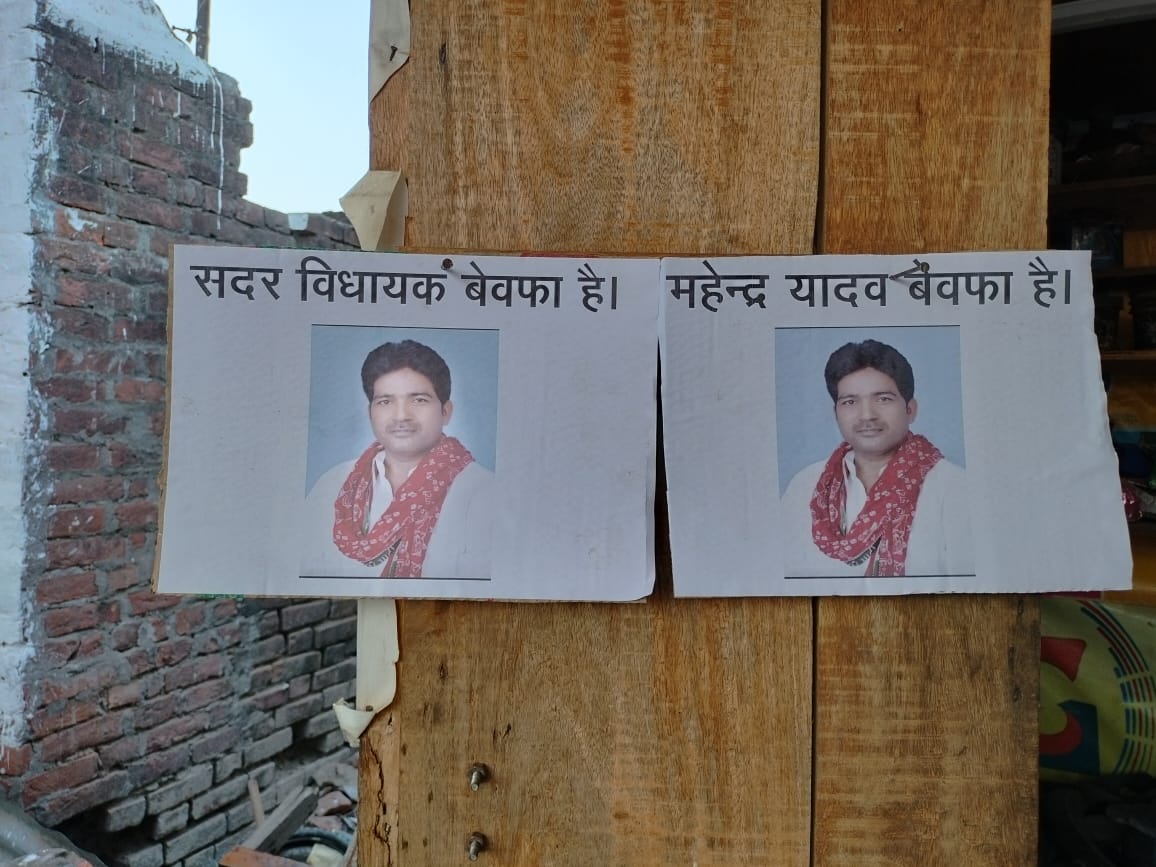 सदर विधायक बेवफा है।
महेन्द्र यादव बेवफा है।